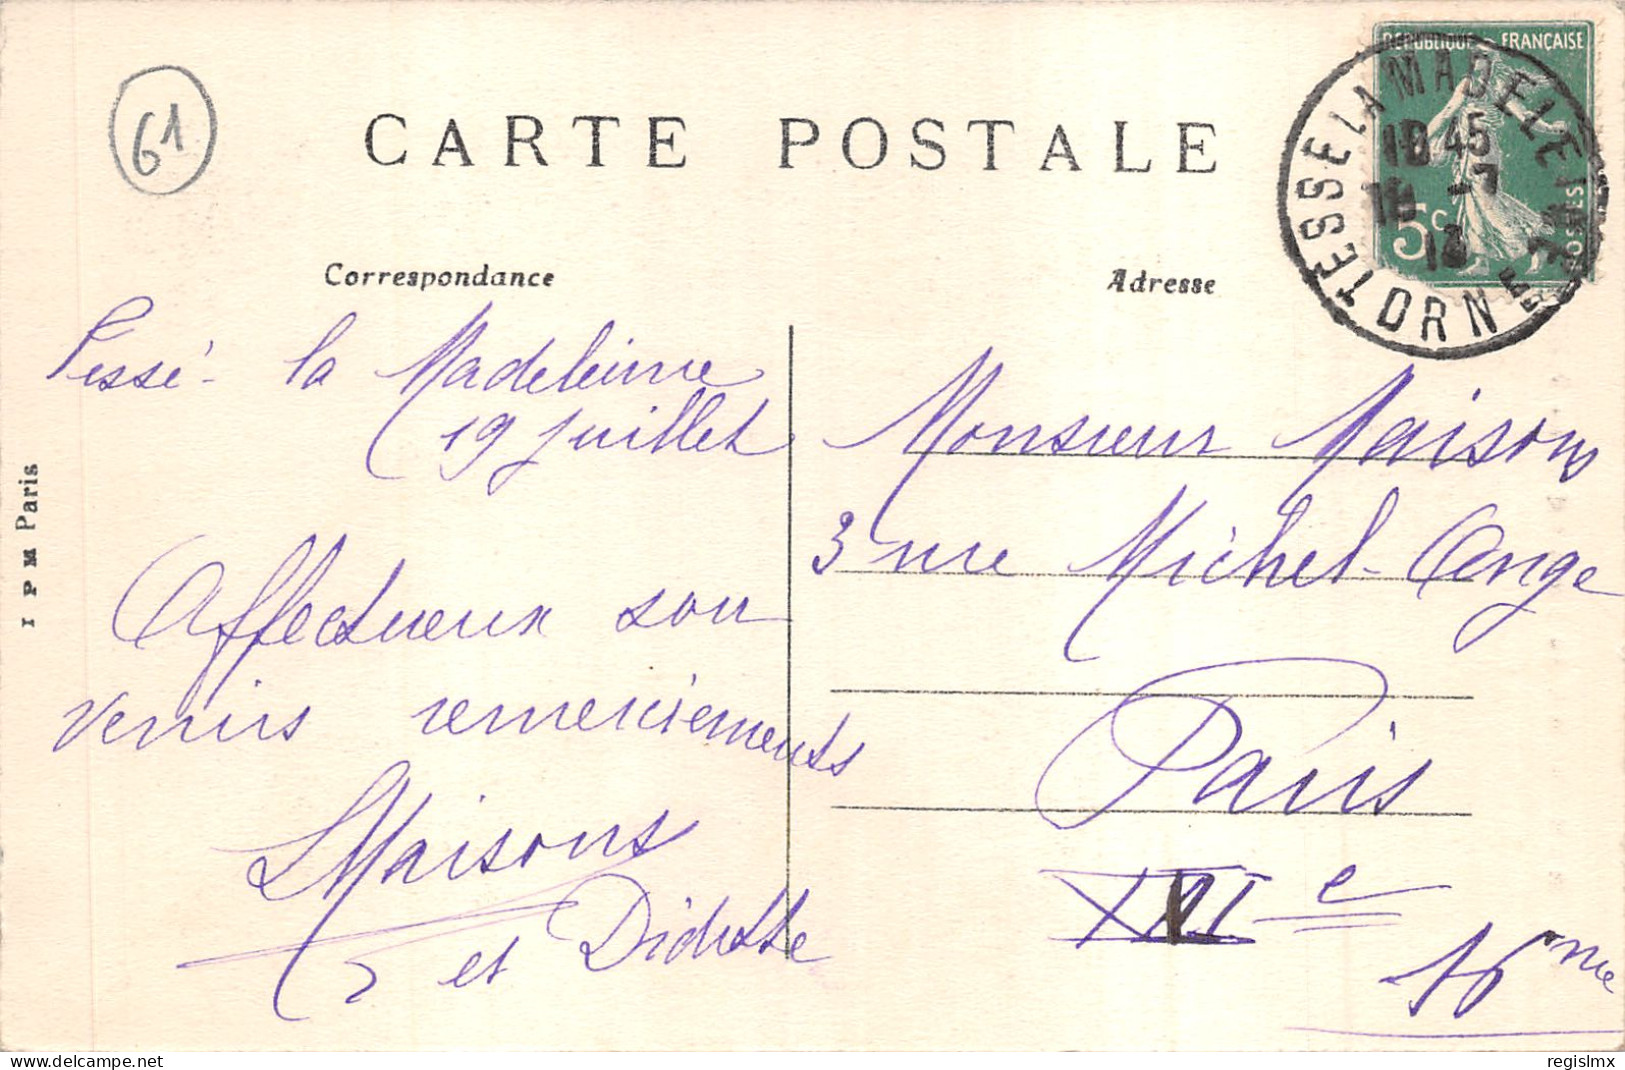 61
CARTE POSTALE
RÉPUBLIQUE FRANÇAISE
POSTES
5c
TESSE LA MADELEINE
10 45
19 -7
13
ORNE
Correspondance
Adresse
Tessé- la Madeleine
19 juillet
Affectueux sou
venirs remerciements
Maisons
et Didette
Monsieur Maisons
3 rue Michel-Ange
Paris
XVIe
16me
I P M Paris
delcampe.net
regislmx